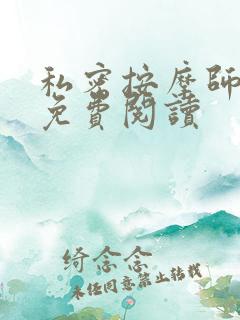 私密按摩師
免費閱讀
绮念念
未经同意禁止转载